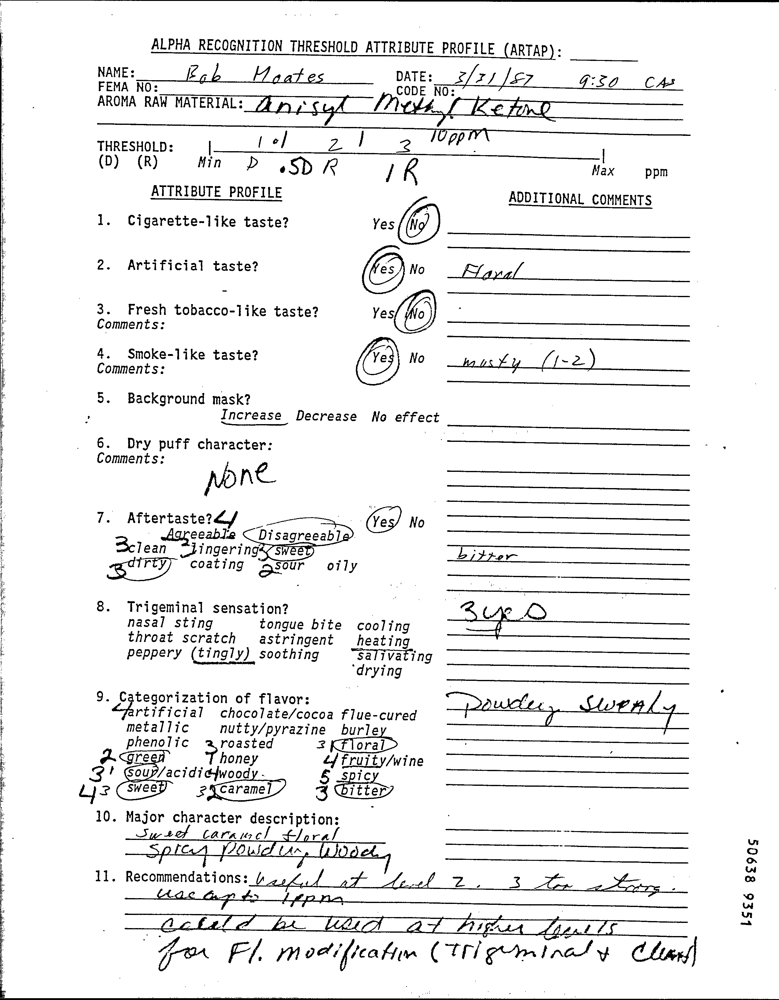 ALPHA RECOGNITION THRESHOLD ATTRIBUTE PROFILE (ARTAP):
NAME: Bob Moates DATE: 3/31/87 9:30
FEMA NO: CODE NO:
AROMA RAW MATERIAL: Anisyl Methyl Ketone
THRESHOLD: 1 2 3 10 ppm
(D) (R) Min D .5D R 1R Max ppm
ATTRIBUTE PROFILE ADDITIONAL COMMENTS
1. Cigarette-like taste? Yes No
2. Artificial taste? Yes No Floral
3. Fresh tobacco-like taste? Yes No
Comments:
4. Smoke-like taste? Yes No musty (1-2)
Comments:
5. Background mask?
Increase Decrease No effect
6. Dry puff character:
Comments:
None
7. Aftertaste? 4 Yes No
Agreeable Disagreeable
3 clean lingering sweet bitter
3 dirty coating 2 sour oily
8. Trigeminal sensation? 3 yes
nasal sting tongue bite cooling
throat scratch astringent heating
peppery (tingly) soothing salivating
drying
9. Categorization of flavor: Powdery Sweaty
artificial chocolate/cocoa flue-cured
metallic nutty/pyrazine burley
phenolic 3 roasted 3 floral
2 green 1 honey 4 fruity/wine
3 sour/acidic 4 woody 5 spicy
43 sweet 3 caramel 3 bitter
10. Major character description:
Sweet caramel floral
Spicy Powdery Woody
11. Recommendations: Useful at level 2. 3 too strong.
use up to 1ppm
could be used at higher levels
for Fl. modification (Trigeminal +
50638 9351